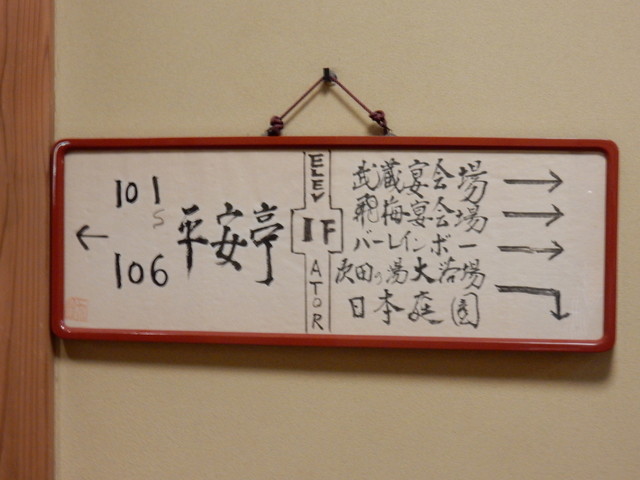 ← 101
S
106
平安亭
ELEV
1F
ATOR
武蔵宴会場 →
飛梅宴会場 →
バーレインボー →
日本庭園